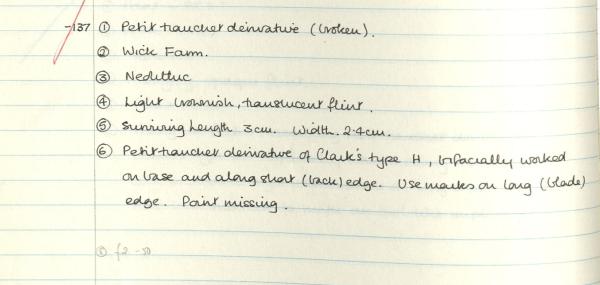 -137 ① Petit traucher derivative (broken).
② Wick Farm.
③ Neolithic
④ Light brownish, translucent flint.
⑤ Surviving Length 3cm. Width. 2.4cm.
⑥ Petit-traucher derivative of Clark's type H, bifacially worked
on base and along short (back) edge. Use marks on long (blade)
edge. Point missing.
⑧ f2-50